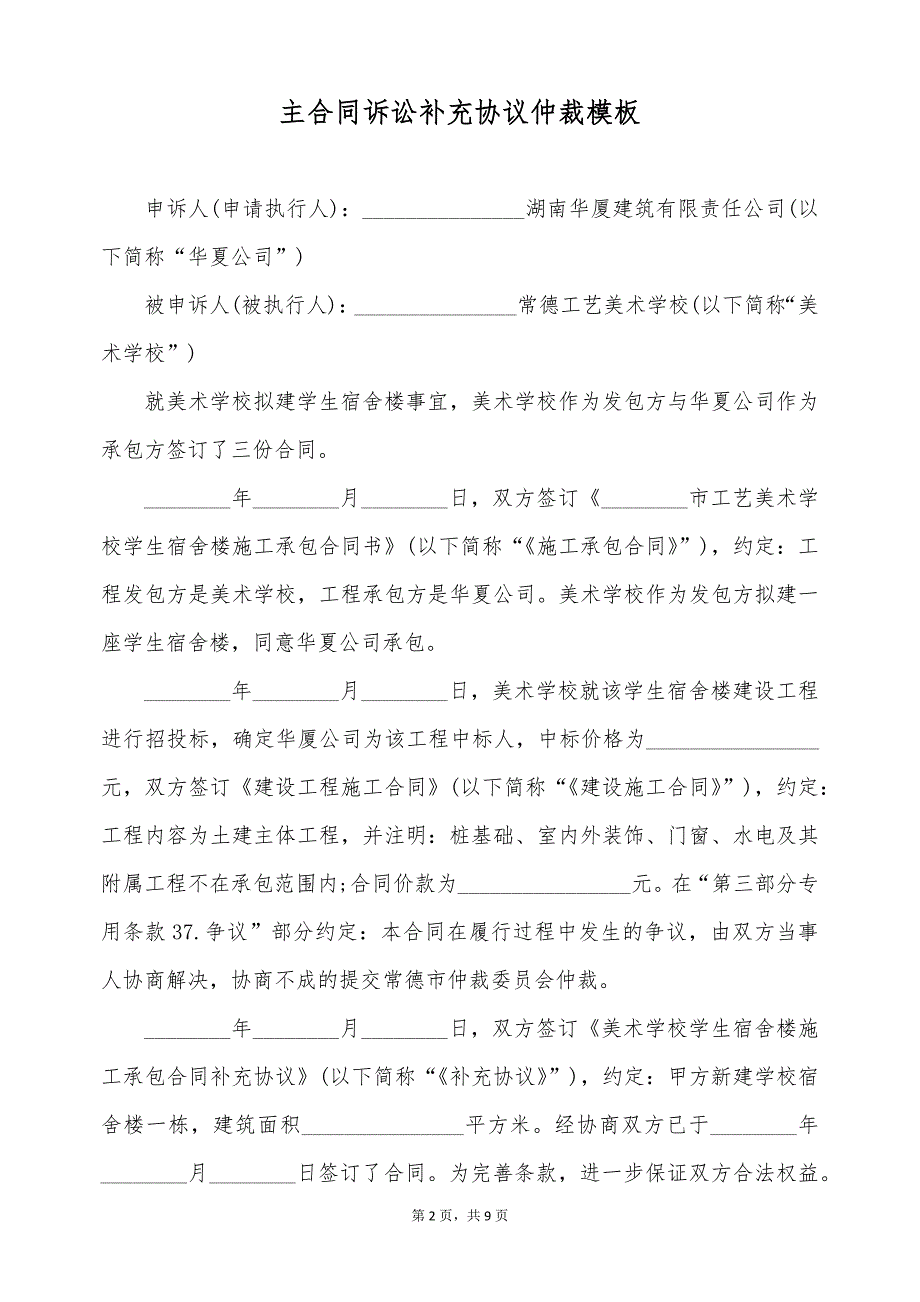 主合同诉讼补充协议仲裁模板
申诉人(申请执行人)：_______________湖南华厦建筑有限责任公司(以
下简称“华夏公司”)
被申诉人(被执行人)：_______________常德工艺美术学校(以下简称“美
术学校”)
就美术学校拟建学生宿舍楼事宜，美术学校作为发包方与华夏公司作为
承包方签订了三份合同。
________年________月________日，双方签订《________市工艺美术学
校学生宿舍楼施工承包合同书》(以下简称“《施工承包合同》”)，约定：工
程发包方是美术学校，工程承包方是华夏公司。美术学校作为发包方拟建一
座学生宿舍楼，同意华夏公司承包。
________年________月________日，美术学校就该学生宿舍楼建设工程
进行招投标，确定华厦公司为该工程中标人，中标价格为________________
元，双方签订《建设工程施工合同》(以下简称“《建设施工合同》”)，约定：
工程内容为土建主体工程，并注明：桩基础、室内外装饰、门窗、水电及其
附属工程不在承包范围内;合同价款为________________元。在“第三部分专
用条款 37.争议”部分约定：本合同在履行过程中发生的争议，由双方当事
人协商解决，协商不成的提交常德市仲裁委员会仲裁。
________年________月________日，双方签订《美术学校学生宿舍楼施
工承包合同补充协议》(以下简称“《补充协议》”)，约定：甲方新建学校宿
舍楼一栋，建筑面积_______________平方米。经协商双方已于________年
________月________日签订了合同。为完善条款，进一步保证双方合法权益。
第 2 页，共 9 页